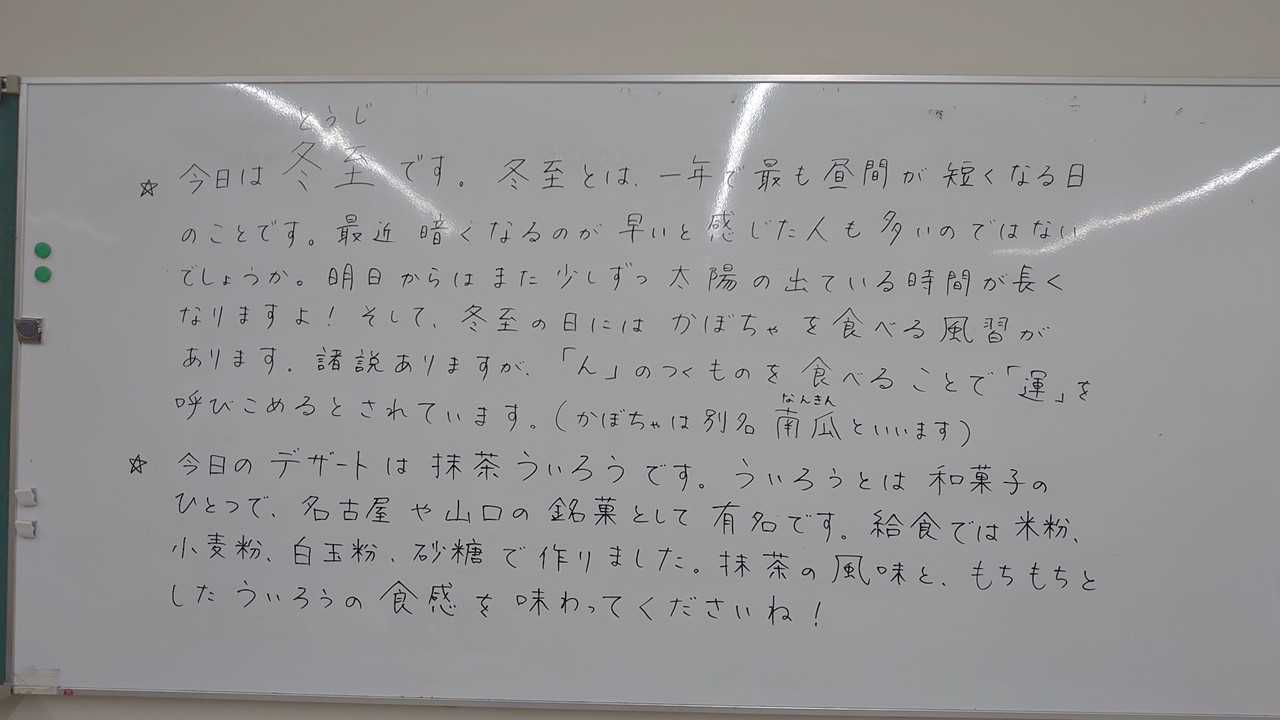 とうじ
☆ 今日は 冬至 です。冬至とは、一年で最も昼間が短くなる日
のことです。最近暗くなるのが早いと感じた人も多いのではない
でしょうか。明日からはまた少しずつ太陽の出ている時間が長く
なりますよ！そして、冬至の日にはかぼちゃを食べる風習が
あります。諸説ありますが、「ん」のつくものを食べることで「運」を
なんきん
呼びこめるとされています。（かぼちゃは別名南瓜といいます）
☆ 今日のデザートは抹茶ういろうです。ういろうとは和菓子の
ひとつで、名古屋や山口の銘菓として有名です。給食では米粉、
小麦粉、白玉粉、砂糖で作りました。抹茶の風味と、もちもちと
したういろうの食感を味わってくださいね！